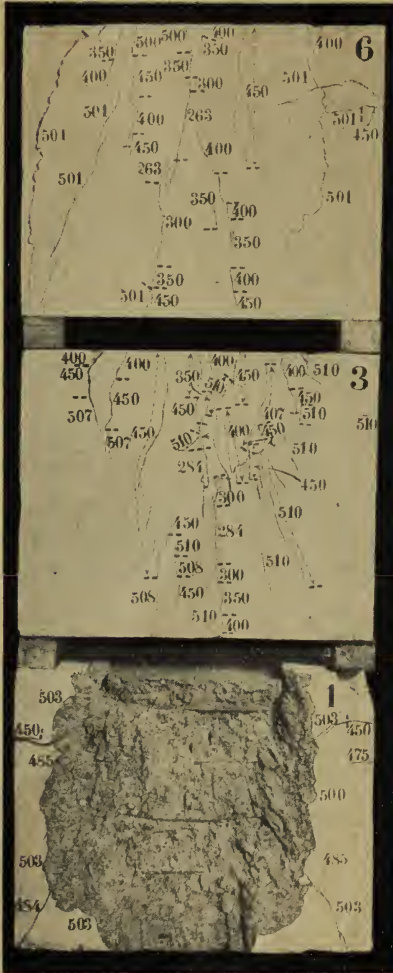 500 400
350 500 350 400 6
400 450 350 300 450 501
501 400 263 501 450
501 450 400
501 263 350 400 501
300 350
350 400
501 450 450
400 400 350 400 450 400 510
450 450 450 3
507 450 407 450 510 510
507 450 510 400 510
284 450
300
450 284 510
510 510
508 300
508 450 350
510 400
503 1
450 503 450
485 475
500
503 485
484 503
503